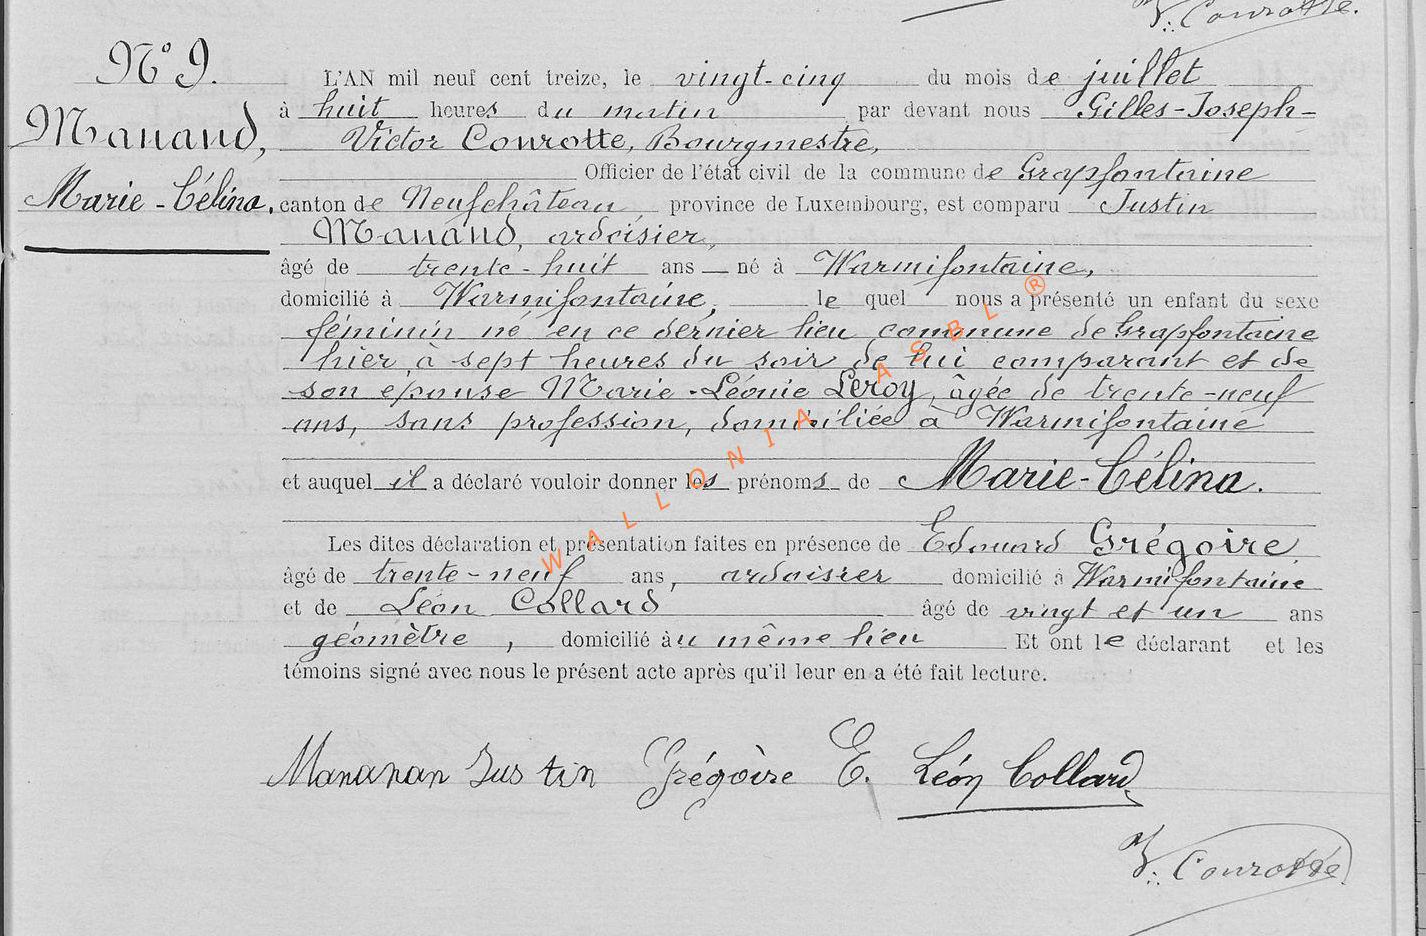 V. Courotte.
N° 9.
Manand,
Marie-Célina.
L'AN mil neuf cent treize, le vingt-cinq du mois de juillet
à huit heures du matin par devant nous Gilles-Joseph-
Victor Courotte, Bourgmestre,
Officier de l'état civil de la commune de Grapfontaine
canton de Neufchâteau province de Luxembourg, est comparu Justin
Manand, ardoisier,
âgé de trente-huit ans né à Warmifontaine,
domicilié à Warmifontaine, le quel nous a présenté un enfant du sexe
féminin né en ce dernier lieu commune de Grapfontaine
hier, à sept heures du soir de lui comparant et de
son epouse Marie-Léonie Leroy, âgée de trente-neuf
ans, sans profession, domiciliée à Warmifontaine
et auquel il a déclaré vouloir donner les prénoms de Marie-Célina.
Les dites déclaration et présentation faites en présence de Edouard Grégoire
âgé de trente-neuf ans, ardoisier domicilié à Warmifontaine
et de Léon Collard âgé de vingt et un ans
géomètre, domicilié au même lieu Et ont le déclarant et les
témoins signé avec nous le présent acte après qu'il leur en a été fait lecture.
Justin Grégoire E. Léon Collard
V. Courotte
WALLONIA ASBL ®